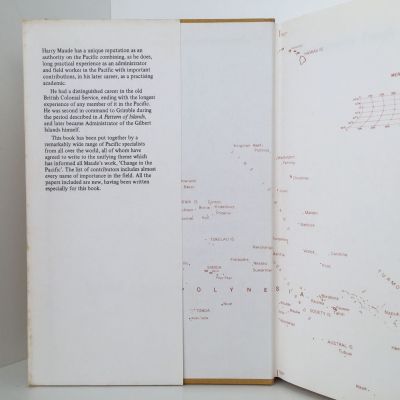 Harry Maude has a unique reputation as an
authority on the Pacific combining, as he does,
long practical experience as an administrator
and field worker in the Pacific with important
contributions, in his later career, as a practising
academic.
He had a distinguished career in the old
British Colonial Service, ending with the longest
experience of any member of it in the Pacific.
He was second in command to Grimble during
the period described in A Pattern of Islands,
and later became Administrator of the Gilbert
Islands himself.
This book has been put together by a
remarkably wide range of Pacific specialists
from all over the world, all of whom have
agreed to write to the unifying theme which
has informed all Maude's work, 'Change in the
Pacific'. The list of contributors includes almost
every name of importance in the field. All the
papers included are new, having been written
especially for this book.
HAWAII IS
TOKELAU IS
SAMOA
POLYNESIA
TONGA
Niue
SOCIETY IS
AUSTRAL IS